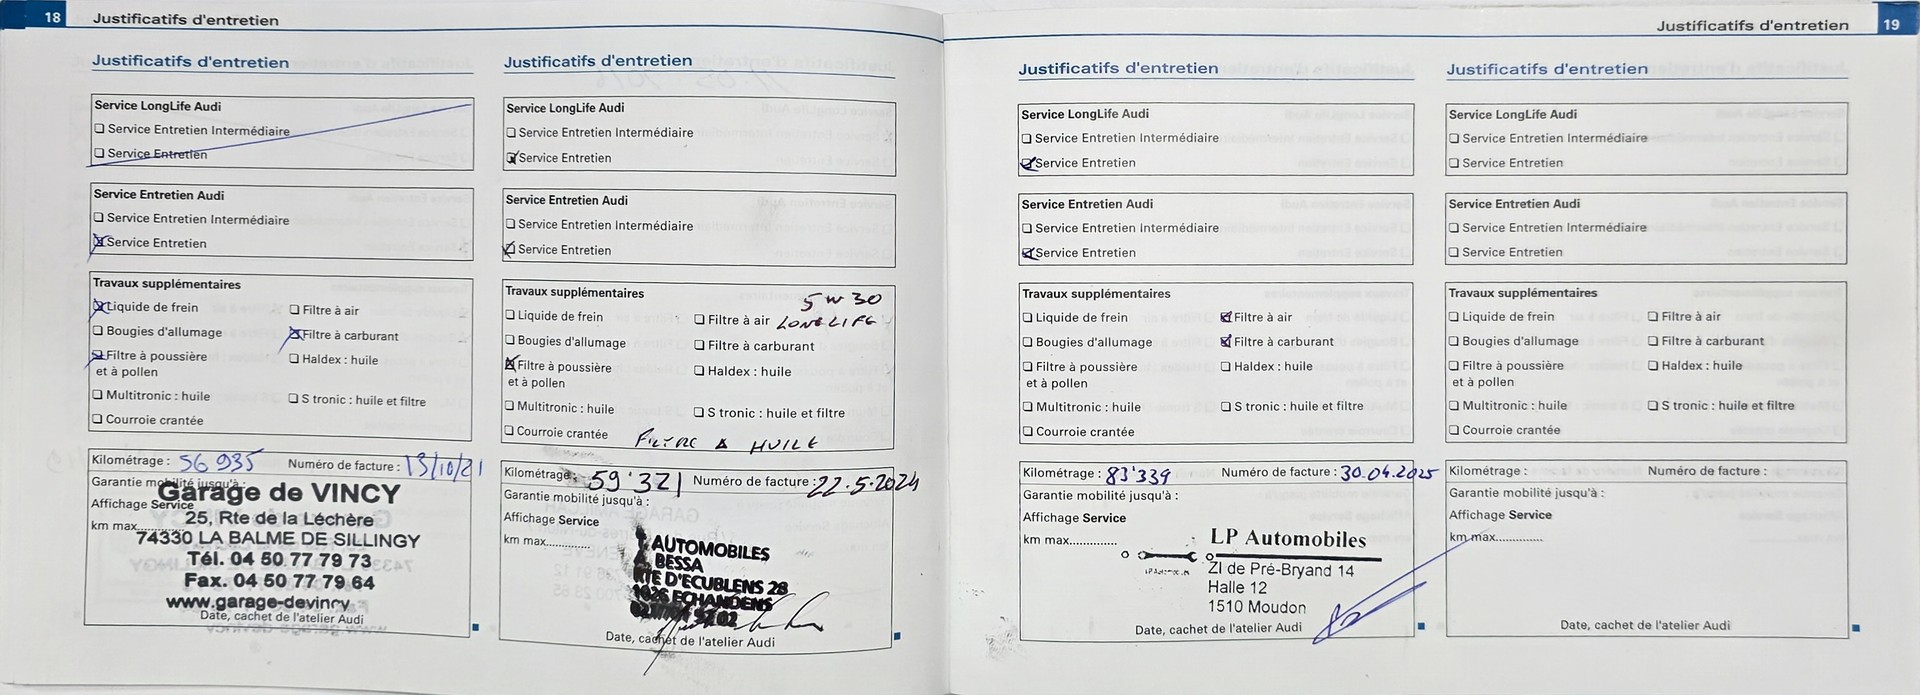 18 Justificatifs d'entretien
Justificatifs d'entretien
Service LongLife Audi
❏ Service Entretien Intermédiaire
❏ Service Entretien
Service Entretien Audi
❏ Service Entretien Intermédiaire
☒ Service Entretien
Travaux supplémentaires
☒ Liquide de frein
❏ Filtre à air
❏ Bougies d'allumage
☒ Filtre à carburant
☒ Filtre à poussière
et à pollen
❏ Haldex : huile
❏ Multitronic : huile
❏ S tronic : huile et filtre
❏ Courroie crantée
Kilométrage : 56 935 Numéro de facture : 13/10/21
Garantie mobilité jusqu'à :
Affichage Service
km max..............
Garage de VINCY
25, Rte de la Léchère
74330 LA BALME DE SILLINGY
Tél. 04 50 77 79 73
Fax. 04 50 77 79 64
www.garage-devincy
Date, cachet de l'atelier Audi
Justificatifs d'entretien
Service LongLife Audi
❏ Service Entretien Intermédiaire
☑ Service Entretien
Service Entretien Audi
❏ Service Entretien Intermédiaire
☑ Service Entretien
Travaux supplémentaires
5W30
LONGLIFE
❏ Liquide de frein
❏ Filtre à air
❏ Bougies d'allumage
❏ Filtre à carburant
☒ Filtre à poussière
et à pollen
❏ Haldex : huile
❏ Multitronic : huile
❏ S tronic : huile et filtre
❏ Courroie crantée
FILTRE A HUILE
Kilométrage : 59'321 Numéro de facture : 22.5.2024
Garantie mobilité jusqu'à :
Affichage Service
km max..............
AUTOMOBILES
BESSA
RTE D'ECUBLENS 28
1026 ECHANDENS
Date, cachet de l'atelier Audi
Justificatifs d'entretien 19
Justificatifs d'entretien
Service LongLife Audi
❏ Service Entretien Intermédiaire
☑ Service Entretien
Service Entretien Audi
❏ Service Entretien Intermédiaire
☑ Service Entretien
Travaux supplémentaires
❏ Liquide de frein
☑ Filtre à air
❏ Bougies d'allumage
☑ Filtre à carburant
❏ Filtre à poussière
et à pollen
❏ Haldex : huile
❏ Multitronic : huile
❏ S tronic : huile et filtre
❏ Courroie crantée
Kilométrage : 83'339 Numéro de facture : 30.04.2025
Garantie mobilité jusqu'à :
Affichage Service
km max..............
LP Automobiles
ZI de Pré-Bryand 14
Halle 12
1510 Moudon
Date, cachet de l'atelier Audi
Justificatifs d'entretien
Service LongLife Audi
❏ Service Entretien Intermédiaire
❏ Service Entretien
Service Entretien Audi
❏ Service Entretien Intermédiaire
❏ Service Entretien
Travaux supplémentaires
❏ Liquide de frein
❏ Filtre à air
❏ Bougies d'allumage
❏ Filtre à carburant
❏ Filtre à poussière
et à pollen
❏ Haldex : huile
❏ Multitronic : huile
❏ S tronic : huile et filtre
❏ Courroie crantée
Kilométrage : Numéro de facture :
Garantie mobilité jusqu'à :
Affichage Service
km max..............
Date, cachet de l'atelier Audi